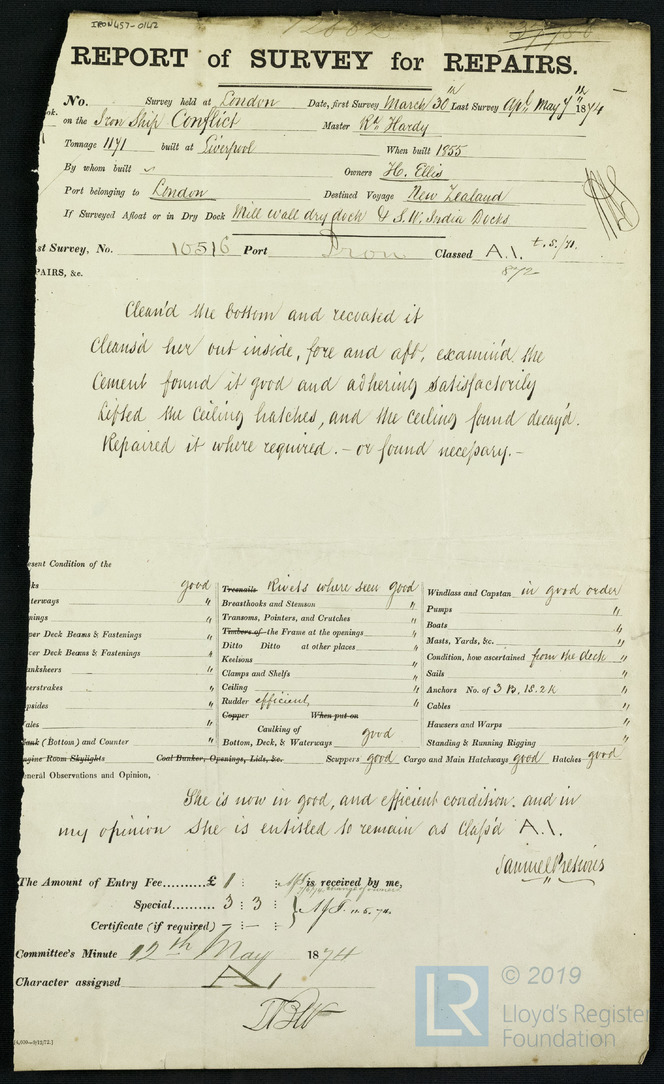 IRON457-0142
REPORT of SURVEY for REPAIRS.
No. Survey held at London Date, first Survey March 30th Last Survey Apl. May 7th 1874
ok. on the Iron Ship Conflict Master Rd. Hardy
Tonnage 1171 built at Liverpool When built 1855
By whom built Owners H. Ellis
Port belonging to London Destined Voyage New Zealand
If Surveyed Afloat or in Dry Dock Mill wall dry dock & S.W. India Docks
st Survey, No. 10516 Port Iron Classed A.1. t.5./71.
8/72
PAIRS, &c.
Clean'd the bottom and recoated it
Cleans'd her out inside, fore and aft, examin'd the
Cement found it good and adhering satisfactorily
Lifted the Ceiling hatches, and the ceiling found decay'd.
Repaired it where required. - or found necessary. -
esent Condition of the
ks good
terways "
nings "
per Deck Beams & Fastenings "
wer Deck Beams & Fastenings "
anksheers "
eerstrakes "
psides "
ales "
lank (Bottom) and Counter "
Treenails Rivets where seen good
Breasthooks and Stemson "
Transoms, Pointers, and Crutches "
Timbers of the Frame at the openings "
Ditto Ditto at other places "
Keelsons "
Clamps and Shelfs "
Ceiling "
Rudder efficient, "
Copper When put on
Caulking of
Bottom, Deck, & Waterways good
Windlass and Capstan in good order
Pumps "
Boats "
Masts, Yards, &c. "
Condition, how ascertained from the deck "
Sails "
Anchors No. of 3 B. 1S. 2K "
Cables "
Hawsers and Warps "
Standing & Running Rigging "
ngine Room Skylights Coal Bunker, Openings, Lids, &c. Scuppers good Cargo and Main Hatchways good Hatches good
eneral Observations and Opinion,
She is now in good, and efficient condition. and in
my opinion She is entitled to remain as Class'd A.1.
Samuel Pretious
The Amount of Entry Fee.......... £ 1 : : is received by me,
Special.......... 3 : 3 : 11.5.74.
Certificate (if required)
Committee's Minute 12th May 1874
Character assigned A1
[4,000-9/12/72.]
LR
© 2019
Lloyd's Register
Foundation